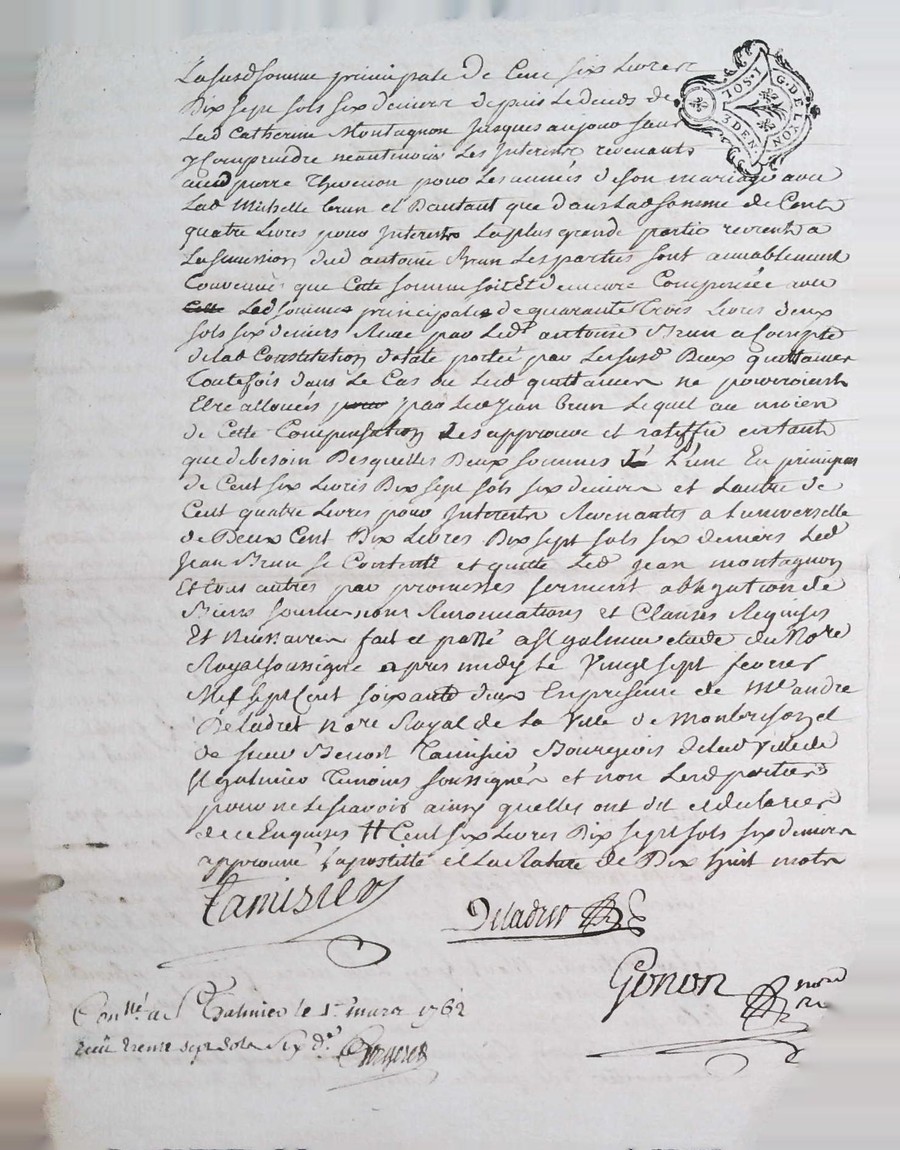 La susd somme principale de Cent six Livres
Dix sept sols six deniers depuis le deceds de
Lad Catherine Montagnon Jusques aujourd'huy
y Comprendre neantmoins Les Interests revenants
aud pierre Thevenon pour Les années de son mariage avec
Lad Michelle brun et D'autant que dans Lad somme de Cent
quatre Livres pour Interests La plus grande partie revient a
La succession dud antoine Brun Les parties sont amiablement
Convenues que Cette somme soit Et demeure Compensée avec
Led sommes principales de quarante trois Livres deux
sols six deniers Receue par Led antoine Brun a Compte
de lad Constitution dotale portée par Les susd Deux quittances
Toutefois dans Le Cas ou Lesd quittances ne pourroient
Etre allouées par Led Jean brun Lequel au moien
de Cette Compensation Les approuve et ratiffie en tant
que de besoin Desquelles Deux sommes L'une En principal
de Cent six Livres Dix sept sols six deniers et L'autre de
Cent quatre Livres pour Interests Revenantes a L'universelle
de Deux Cent Dix Livres Dix sept sols six deniers Led
Jean Brun se Contente et quitte Led Jean montagnon
Et tous autres par promesses serment obligation de
Biens soumissions Renonciations et Clauses Requises
Et Necessaires fait et passé a St galmier etude du Nore
Royal soussigné apres midy Le Vingt sept fevrier
Mil sept Cent soixante deux En presence de Me andre
Deladret Nore Royal de La Ville de Montbrison et
de sieur Benoit Tamisier Bourgeois de lad Ville de
St galmier Temoins soussignés et non Lesd parties
pour ne Le scavoir ainsy quelles ont dit et declarees
de ce Enquises # Cent six Livres Dix sept sols six deniers
approuvé L'apostille et La Rature de Dix huit mots
Tamisier
Deladret
Gonon nore
Conllé a St Galmier le 1er mars 1762
recu trente sept sols six drs
G. DE LYON
IOS. I
3 DEN.